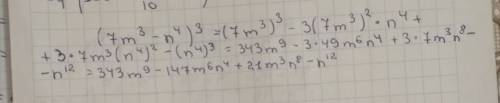 10
(7m³ - n⁴)³ = (7m³)³ - 3(7m³)² · n⁴ +
+ 3 · 7m³(n⁴)² - (n⁴)³ = 343m⁹ - 3 · 49m⁶n⁴ + 3 · 7m³n⁸ -
- n¹² = 343m⁹ - 147m⁶n⁴ + 21m³n⁸ - n¹²